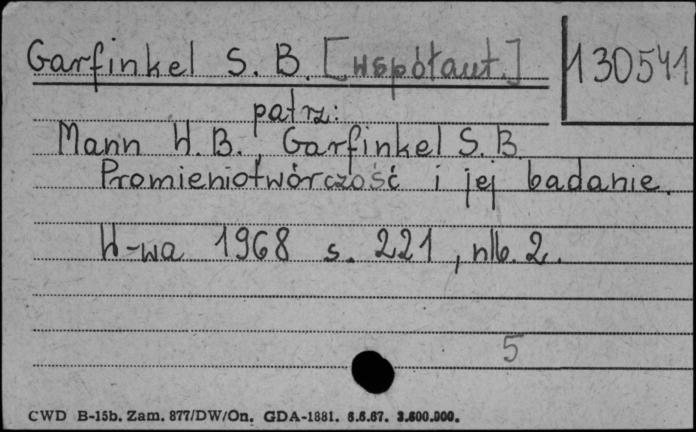 Garfinkel S. B. [współaut.]
130541
patrz:
Mann W. B. Garfinkel S. B.
Promieniotwórczość i jej badanie.
W-wa 1968 s. 221, nlb. 2.
5
CWD B-15b. Zam. 877/DW/On. GDA-1881. 6.6.67. 3.600.000.